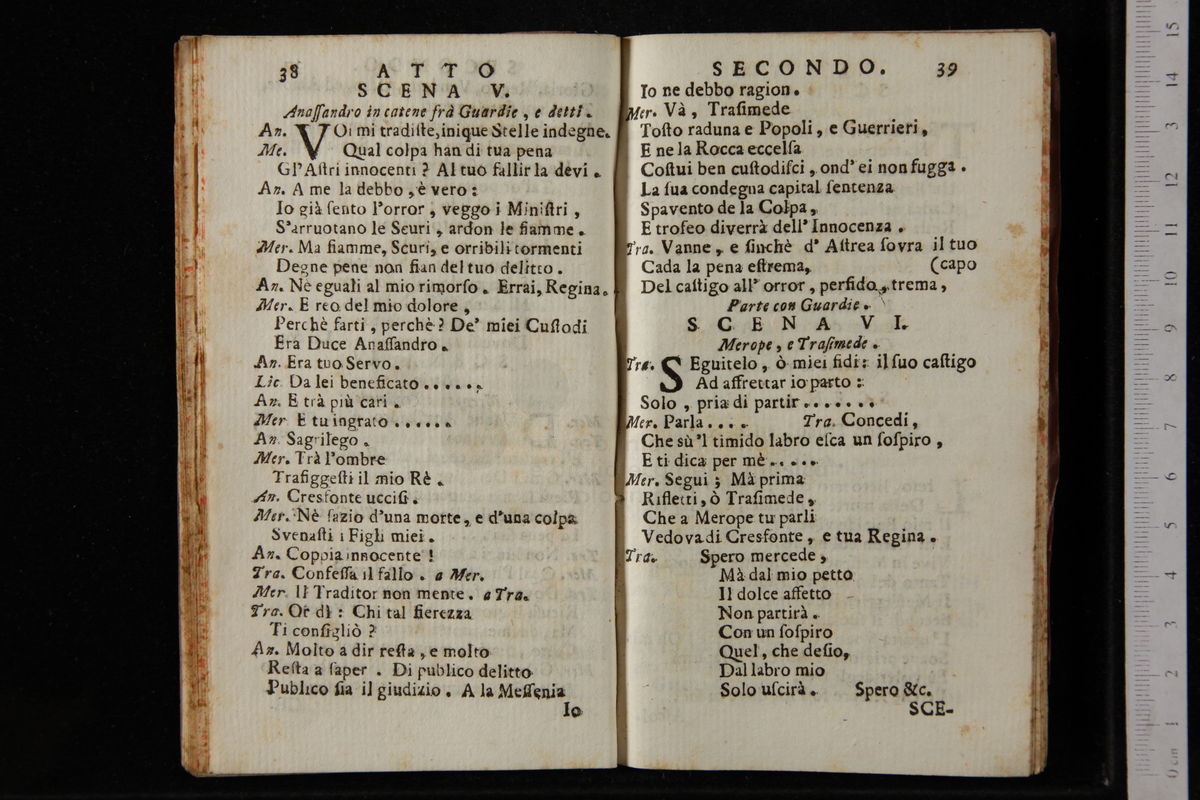 38 ATTO
SCENA V.
Anaſſandro in catene frà Guardie, e detti.
An. VOi mi tradiſte, inique Stelle indegne.
Me. Qual colpa han di tua pena
Gl'Aſtri innocenti? Al tuo fallir la devi.
An. A me la debbo, è vero:
Io già ſento l'orror, veggo i Miniſtri,
S'arruotano le Scuri, ardon le fiamme.
Mer. Ma fiamme, Scuri, e orribili tormenti
Degne pene non fian del tuo delitto.
An. Nè eguali al mio rimorſo. Errai, Regina.
Mer. E reo del mio dolore,
Perchè farti, perchè? De' miei Cuſtodi
Era Duce Anaſſandro.
An. Era tuo Servo.
Lic. Da lei beneficato......
An. E trà più cari.
Mer E tu ingrato......
An. Sagrilego.
Mer. Trà l'ombre
Trafiggeſti il mio Rè.
An. Cresfonte ucciſi.
Mer. Nè ſazio d'una morte, e d'una colpa
Svenaſti i Figli miei.
An. Coppia innocente!
Tra. Confeſſa il fallo. a Mer.
Mer Il Traditor non mente. a Tra.
Tra. Or dì: Chi tal fierezza
Ti conſigliò?
An. Molto a dir reſta, e molto
Reſta a ſaper. Di publico delitto
Publico ſia il giudizio. A la Meſſenia
Io
SECONDO. 39
Io ne debbo ragion.
Mer. Và, Traſimede
Toſto raduna e Popoli, e Guerrieri,
E ne la Rocca eccelſa
Coſtui ben cuſtodiſci, ond' ei non fugga.
La ſua condegna capital ſentenza
Spavento de la Colpa,
E trofeo diverrà dell' Innocenza.
Tra. Vanne, e ſinchè d' Aſtrea ſovra il tuo
Cada la pena eſtrema, (capo
Del caſtigo all' orror, perfido, trema,
Parte con Guardie.
SCENA VI.
Merope, e Traſimede.
Tra. SEguitelo, ò miei fidi: il ſuo caſtigo
Ad affrettar io parto:
Solo, pria di partir.......
Mer. Parla.... Tra. Concedi,
Che sù'l timido labro eſca un ſoſpiro,
E ti dica per mè.....
Mer. Segui; Mà prima
Rifletti, ò Traſimede,
Che a Merope tu parli
Vedova di Cresfonte, e tua Regina.
Tra. Spero mercede,
Mà dal mio petto
Il dolce affetto
Non partirà.
Con un ſoſpiro
Quel, che deſio,
Dal labro mio
Solo uſcirà. Spero &c.
SCE-